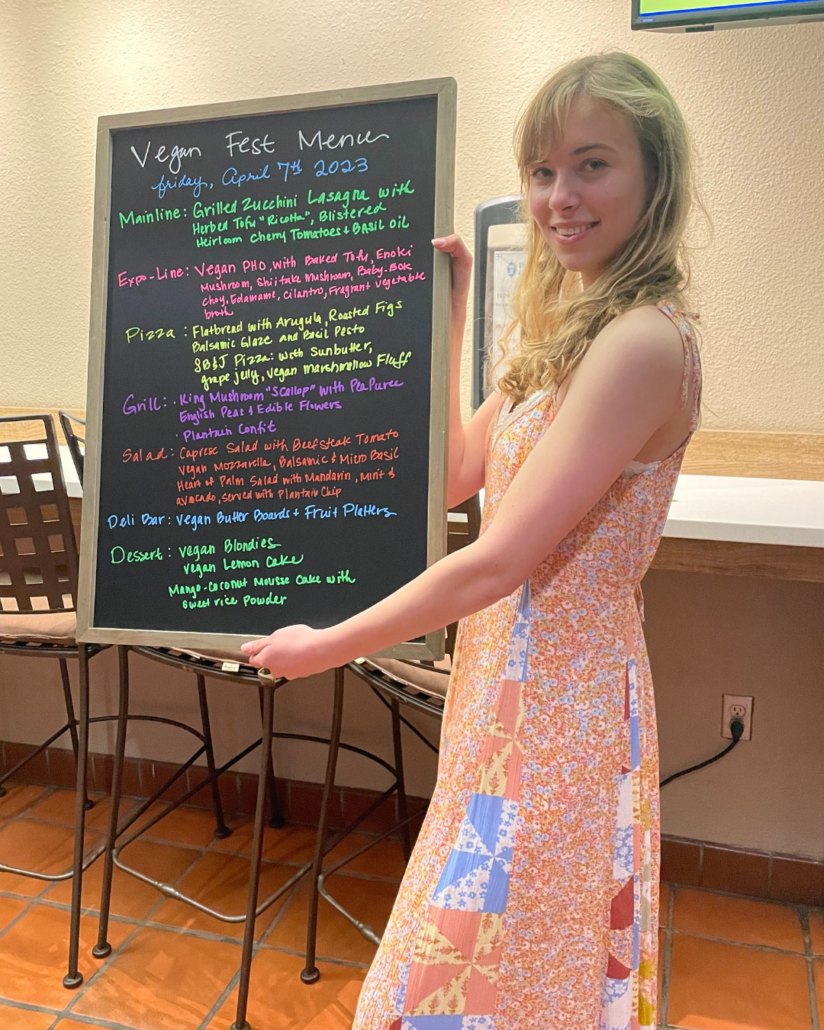 Vegan Fest Menu
friday, April 7th 2023
Mainline: Grilled Zucchini Lasagna with
Herbed Tofu "Ricotta", Blistered
Heirloom Cherry Tomatoes & Basil Oil
Expo-Line: Vegan PHO, with Baked Tofu, Enoki
Mushroom, Shiitake Mushroom, Baby-Bok
choy, Edamame, cilantro, Fragrant vegetable
broth
Pizza: Flatbread with Arugula, Roasted Figs
Balsamic Glaze and Basil Pesto
SB&J Pizza: with Sunbutter,
grape jelly, vegan marshmallow Fluff
Grill: · King Mushroom "Scallop" with Pea Puree
English Peas & Edible Flowers
· Plantain Confit
Salad: Caprese Salad with Beefsteak Tomato
Vegan Mozzarella, Balsamic & Micro Basil
Heart of Palm Salad with Mandarin, Mint &
avocado, served with Plantain Chip
Deli Bar: Vegan Butter Boards + Fruit Platters
Dessert: Vegan Blondies
Vegan Lemon Cake
Mango-Coconut Mousse Cake with
sweet rice Powder